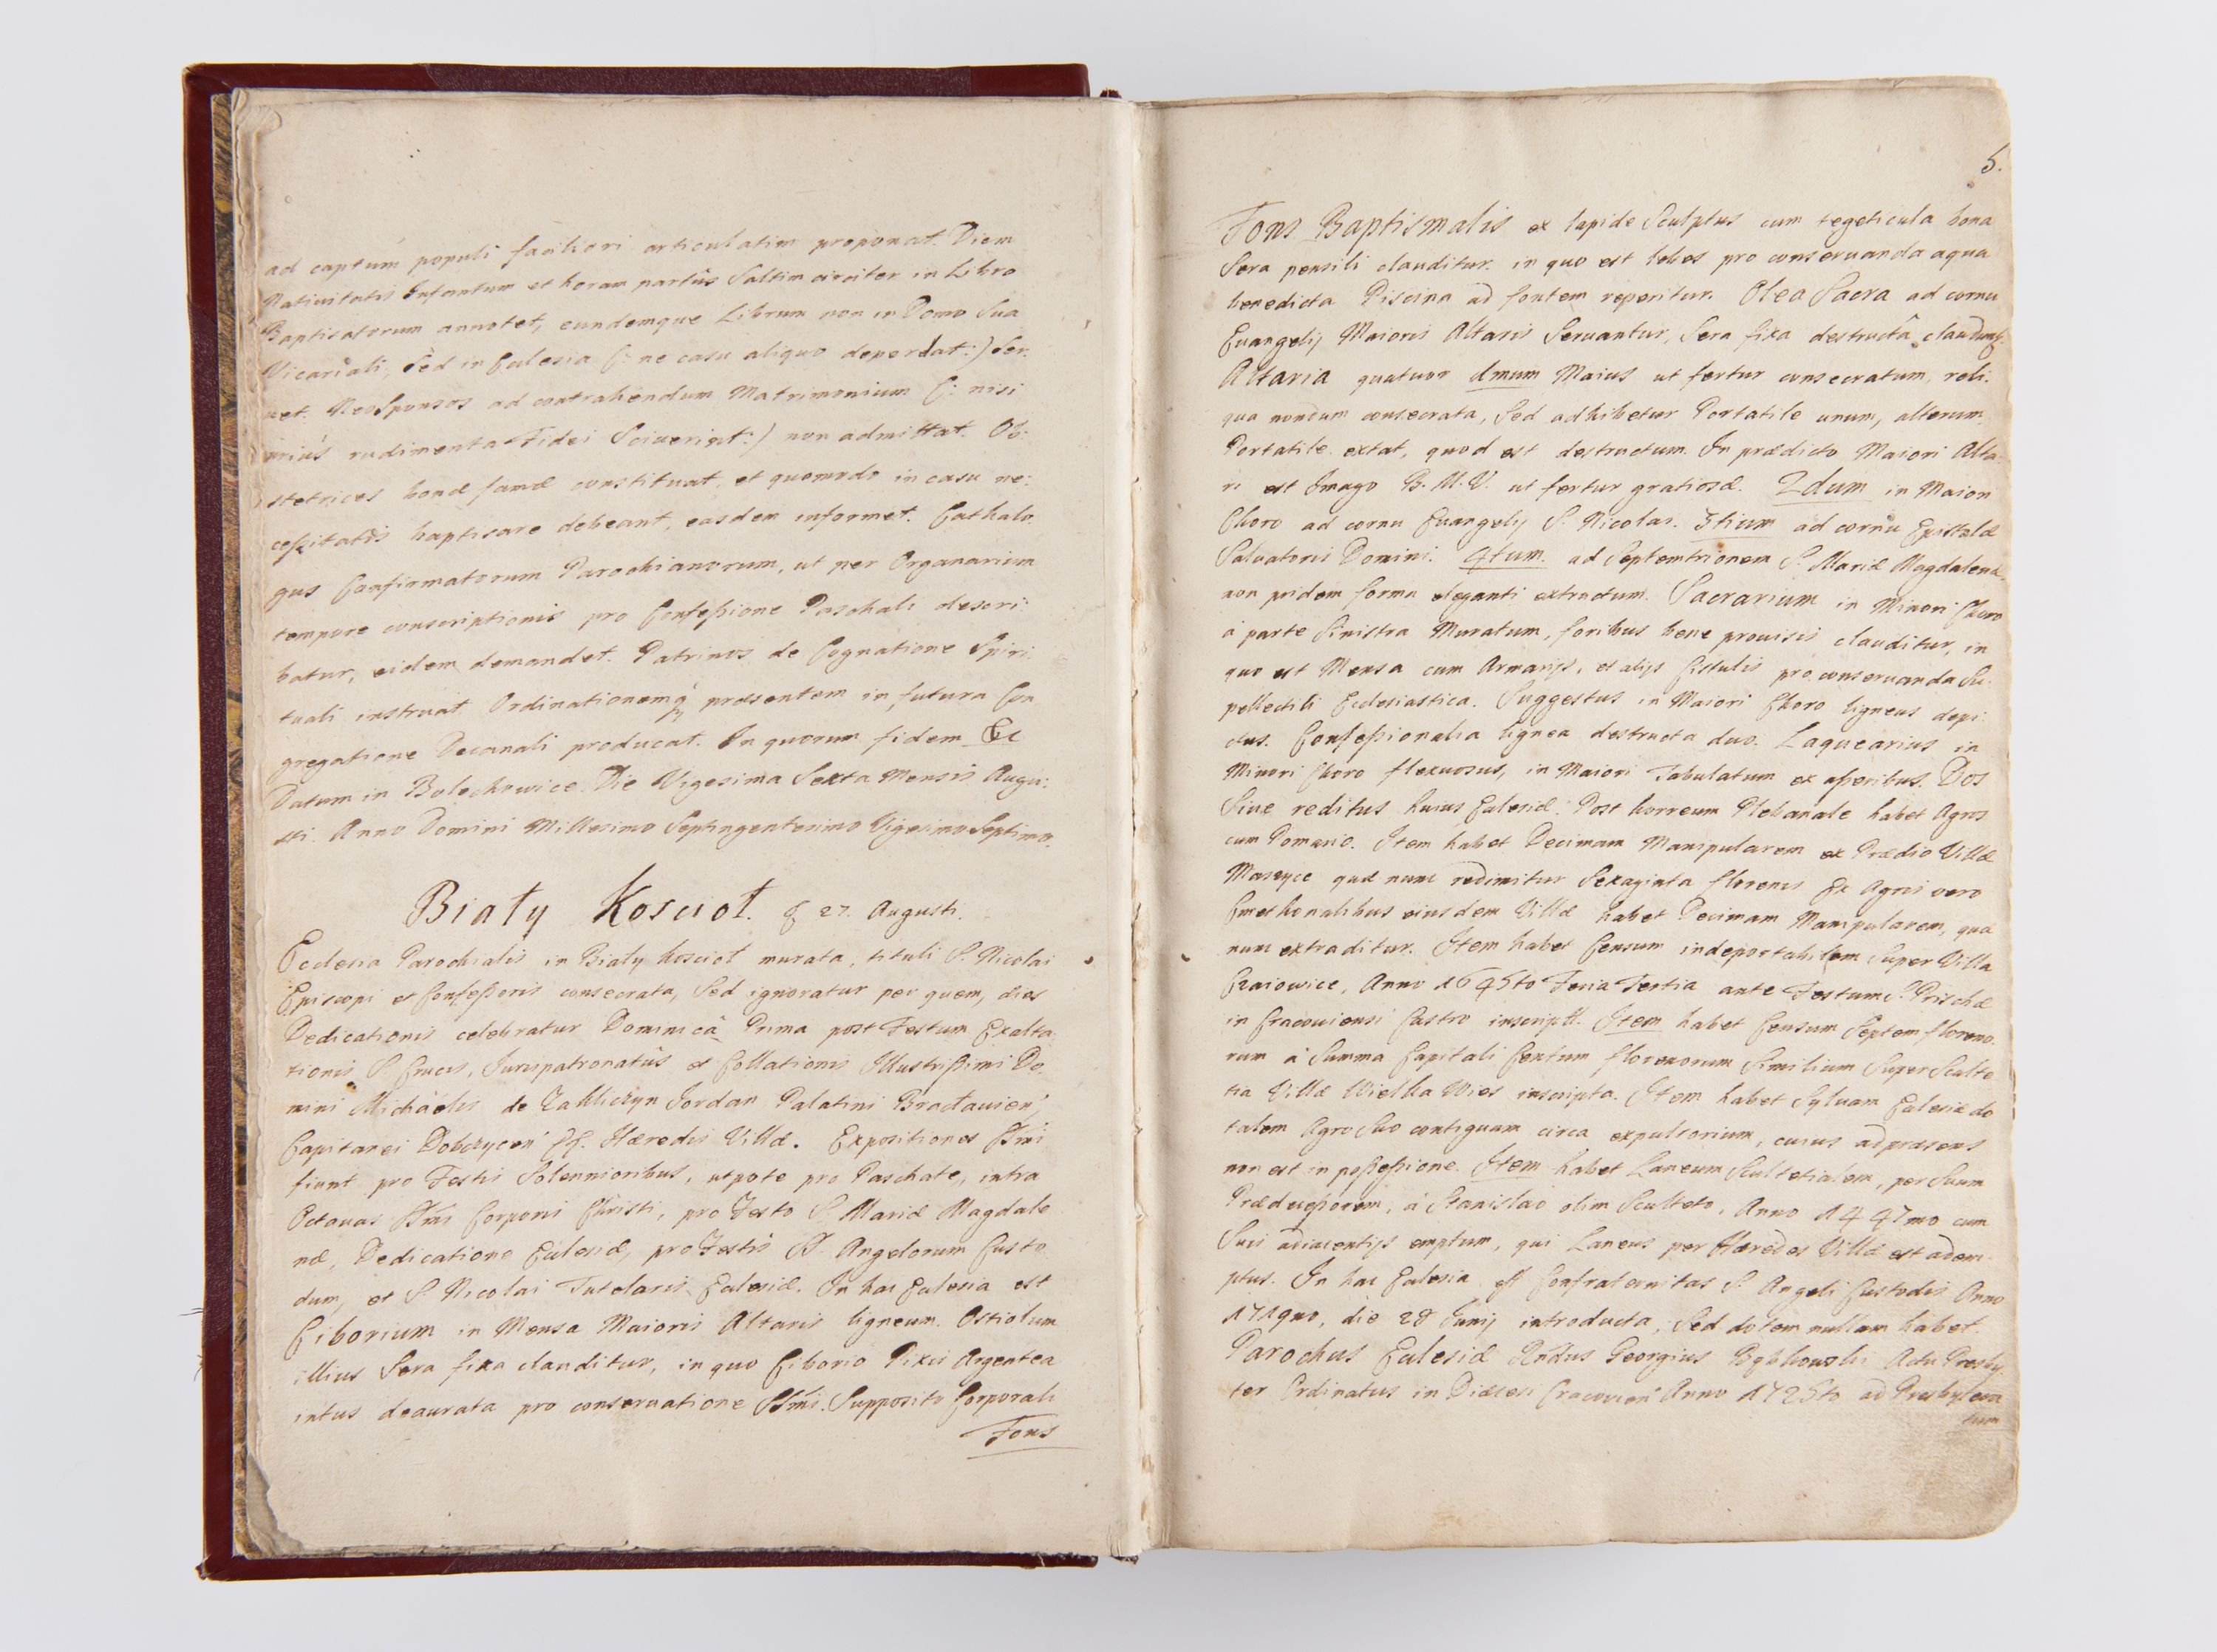 ad captum populi faciliori articulatim proponat. Diem
Nativitatis Infantum et horam partûs Saltim circiter in Libro
Baptisatorum annotet, eundemque Librum non in Domo Sua
Vicariali, Sed in Ecclesia (: ne casu aliquo deperdat :) Ser:
uet. Neosponsos ad contrahendum Matrimonium (: nisi
prius rudimenta Fidei Sciuerint :) non admittat. Ob:
stetrices bonæ famæ constituat, et quomodo in casu ne:
cessitatis baptisare debeant, easdem informet. Cathalo
gus Confirmatorum Parochianorum, ut per Organarium
tempore conscriptionis pro Confessione Paschali descri:
batur, eidem demandet. Patrinos de Cognatione Spiri
tuali instruat Ordinationemq; præsentem in futura Con
gregatione Decanali producat. In quorum fidem &c
Datum in Bolechowice. Die Vigesima Sexta Mensis Augu:
sti. Anno Domini Millesimo Septingentesimo Vigesimo Septimo.
Biały Koscioł. 27. Augusti.
Ecclesia Parochialis in Biały koscioł murata, tituli S. Nicolai
Episcopi et Confessoris consecrata, Sed ignoratur per quem, dies
Dedicationis celebratur Dominicâ Prima post Festum Exalta
tionis S. Crucis, Jurispatronatûs et Collationis Illustrissimi Do
mini Michaelis de Zakliczyn Jordan Palatini Bracłauien',
Capitanei Dobczycen' Hæredis Villæ. Expositiones SSmi
fiunt pro Festis Solennioribus, utpote pro Paschate, intra
Octauas SSmi Corporis Christi, pro Festo S. Mariæ Magdale
næ, Dedicatione Ecclesiæ, pro Festis SS. Angelorum Custo
dum, et S. Nicolai Tutelaris Ecclesiæ. In hac Ecclesia est
Ciborium in Mensa Maioris Altaris ligneum. Ostiolum
illius Sera fixa clauditur, in quo Ciborio Pixis Argentea
intus deaurata pro conseruatione SSmi. Supposito Corporali
Fons
5.
Fons Baptismalis ex lapide Sculptus cum tegeticula bona
Sera pensili clauditur. in quo est lebes pro conseruanda aqua
benedicta Piscina ad fontem reperitur. Olea Sacra ad cornu
Euangelij Maioris Altaris Seruantur, Sera fixa destructâ
Altaria quatuor 1mum Maius ut fertur consecratum, reli:
qua nondum consecrata, Sed adhibetur Portatile unum, alterum
Portatile extat, quod est destructum. In prædicto Maiori Alta
ri est Imago B. M. V. ut fertur gratiosæ. 2dum in Maiori
Choro ad cornu Euangelij S. Nicolai. 3tium ad cornu Epistolæ
Saluatoris Domini. 4tum. ad Septemtrionem S. Mariæ Magdalenæ
non pridem forma eleganti extructum. Sacrarium in Minori Choro
à parte Sinistra Muratum, foribus bene prouisis clauditur, in
quo est Mensa cum Armarijs, et alijs Cistulis pro conseruanda Su:
pellectili Ecclesiastica. Suggestus in Maiori Choro ligneus depi:
ctus. Confessionalia lignea destructa duo. Laquearius in
Minori Choro flexuosus, in Maiori Tabulatum ex asseribus. Dos
Siue reditus huius Ecclesiæ. Post horreum Plebanale habet Agros
cum Pomario. Item habet Decimam Manipularem ex Prædio Villæ
Maszyce quæ nunc redimitur Sexaginta florenis Ex Agris vero
Cmethonalibus eiusdem Villæ habet Decimam Manipularem, quæ
nunc extraditur. Item habet Censum indeportabilem Super Villa
Czaiowice, Anno 1645to Feria Tertia ante Festum S. Priscæ
in Cracouiensi Castro inscript. Item habet Censum Septem floreno
rum à Summa Capitali Centum florenorum Similium Super Sculte
tia Villæ Wielka Wies inscripta. Item habet Syluam Ecclesiæ do
talem Agro Suo contiguam circa expulsorium, cuius ad præsens
non est in possessione. Item habet Laneum Scultetialem, per Suum
Prædecessorem, à Stanislao olim Sculteto, Anno 1447mo cum
Suis adiacentijs emptum, qui Laneus per Hæredes Villæ est adem
ptus. In hac Ecclesia est Confraternitas S. Angeli Custodis Anno
die 28 Junij introducta, Sed dotem nullam habet.
Parochus Ecclesiæ Rndus Georgius Actu Presby
ter Ordinatus in Diæcesi Cracouien' Anno 1725to ad Presbytera
tum